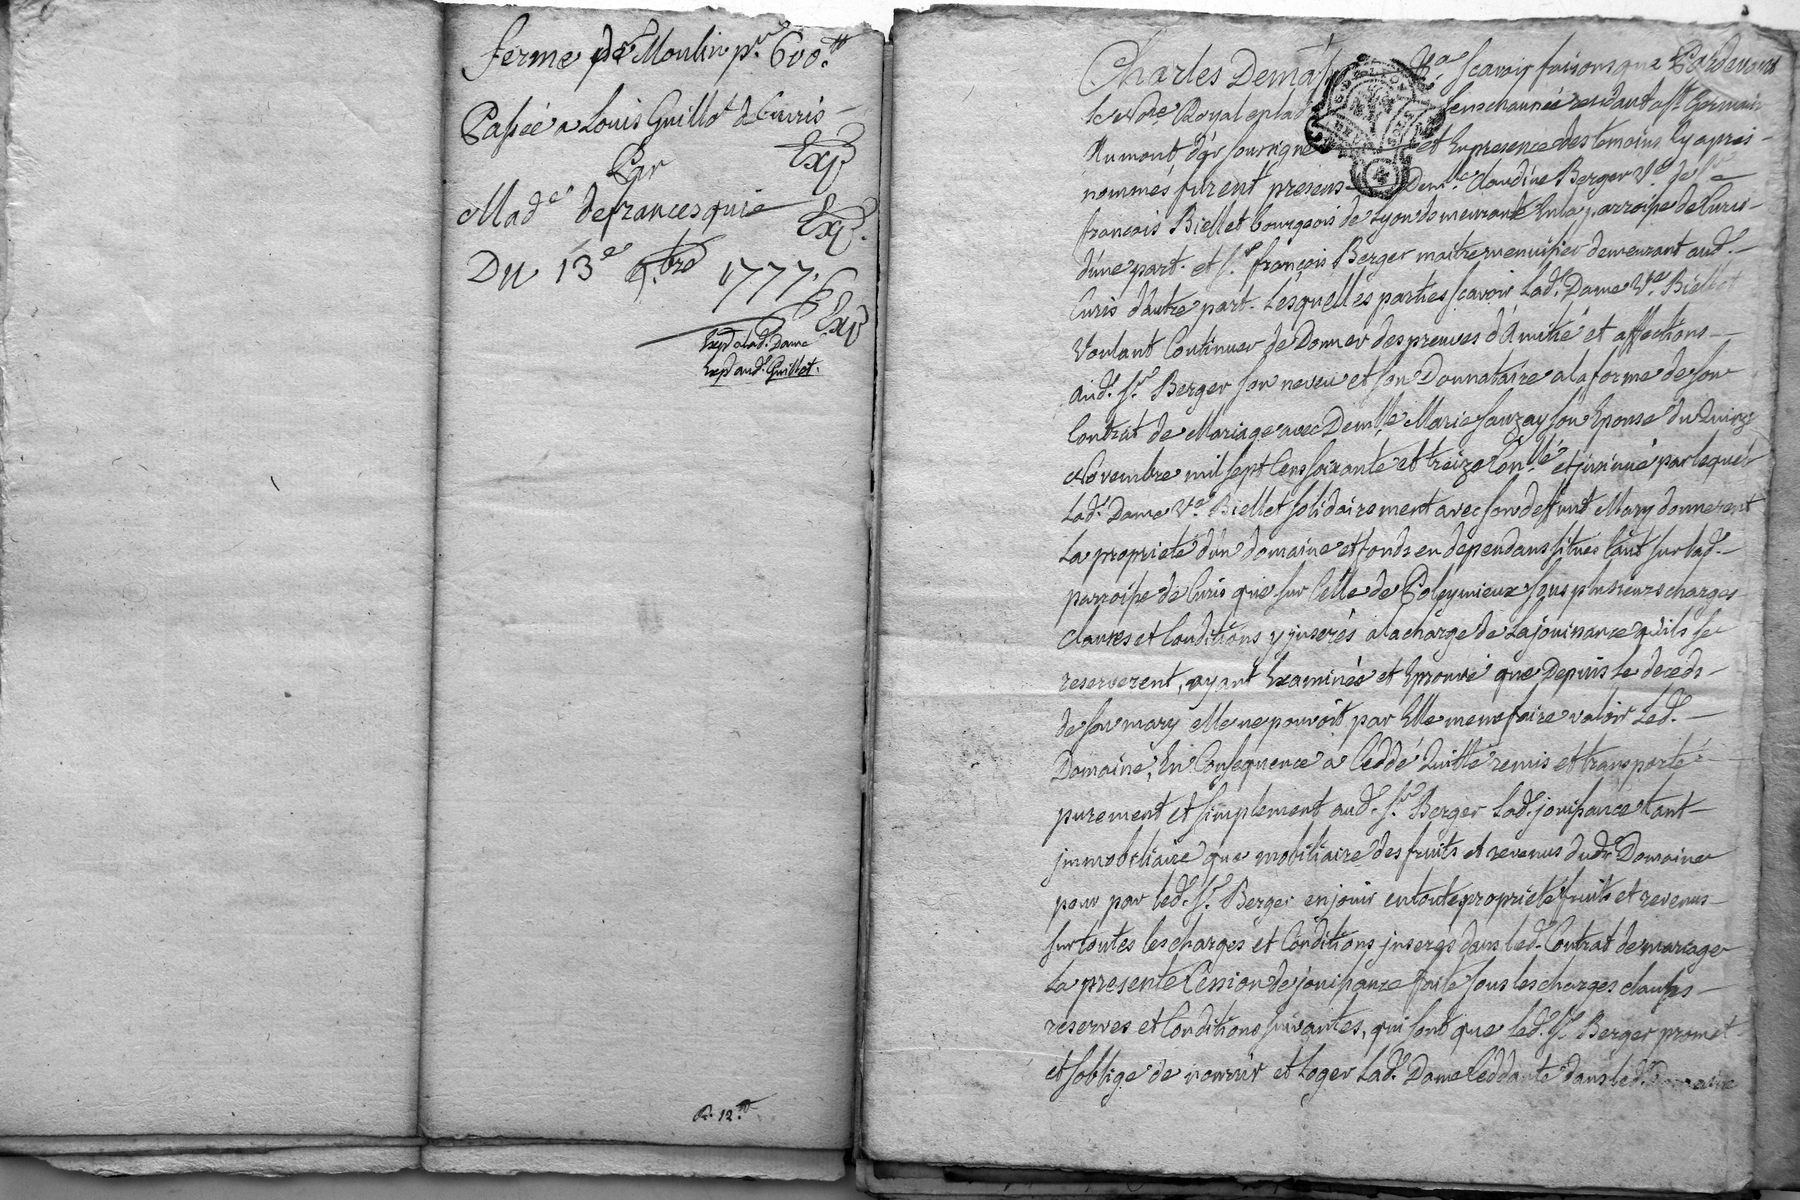 ferme de Moulin pr. 600.tt
Passée a Louis Guillot de Curis
Par Exp
Made defrancesquie Exp.
Du 13e 9.bre 1777. Exp
Exp a lad. Dame
Exp aud. Guillot.
R. 12.tt
Charles Demas scavoir faisons que Pardevant
le Nore Royal resident a St. Germain
Aumont d'or soussigné et En presence des temoins Cy apres
nommés furent presens Demlle Claudine Berger Ve de Sr
françois Biellet bourgeois de Lyon demeurante En la parroisse de Curis
d'une part. et Sr. françois Berger maitre menuisier demeurant aud.
Curis d'autre part. Lesquelles parties scavoir Lad. Dame Ve. Biellet
Voulant Continuer de Donner des preuves d'Amitié et affections
aud. Sr. Berger son neveu et son Donnataire a la forme de son
Contrat de Mariage avec Demlle Marie Sauzay son Epouse du Quinze
Novembre mil sept Cens soixante et treize Conlé et jnsinué par lequel
Lad. Dame Ve. Biellet solidairement avec son deffunt Mary donnerent
La proprieté d'un domaine et fonds en dependans situés tant sur lad.
parroisse de Curis que sur Celle de Poleymieux sous plusieurs charges
clauses et Conditions y jnserés a la charge de La jouissance qu'ils se
reserverent, ayant Examinée et Eprouvé que Depuis le deceds
de son mary elle ne pouvoit par Elle meme faire valoir Led.
Domaine, En Consequence a Ceddé Quitté remis et transporté
purement et simplement aud. Sr. Berger Lad. jouissance tant
jmmobiliaire que mobiliaire des fruits et revenus dud. Domaine
pour par led. Sr. Berger en jouir en toute proprieté fruits et revenus
sur toutes les charges et Conditions jnserés dans led. Contrat de mariage
La presente Cession de jouissance faite sous les charges clauses
reserves et Conditions suivantes, qui sont que led. Sr. Berger promet
et s'oblige de nourir et loger Lad. Dame Ceddante dans led. Domaine